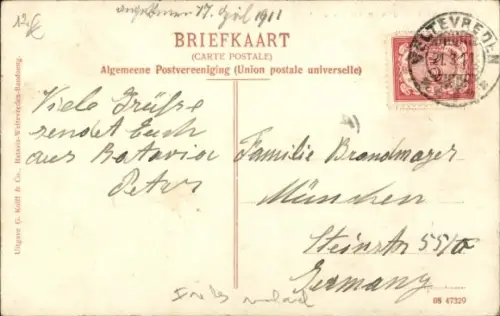 angekommen 17. April 1911
12.€
BRIEFKAART
(CARTE POSTALE)
Algemeene Postvereeniging (Union postale universelle)
WELTEVREDEN
Viele Grüsse
sendet Euch
aus Batavia
Peter
Familie Brandmayer
München
Steinstr 55/0
Germany
Uitgave G. Kolff & Co., Batavia-Weltevreden-Bandoeng.
88 47329